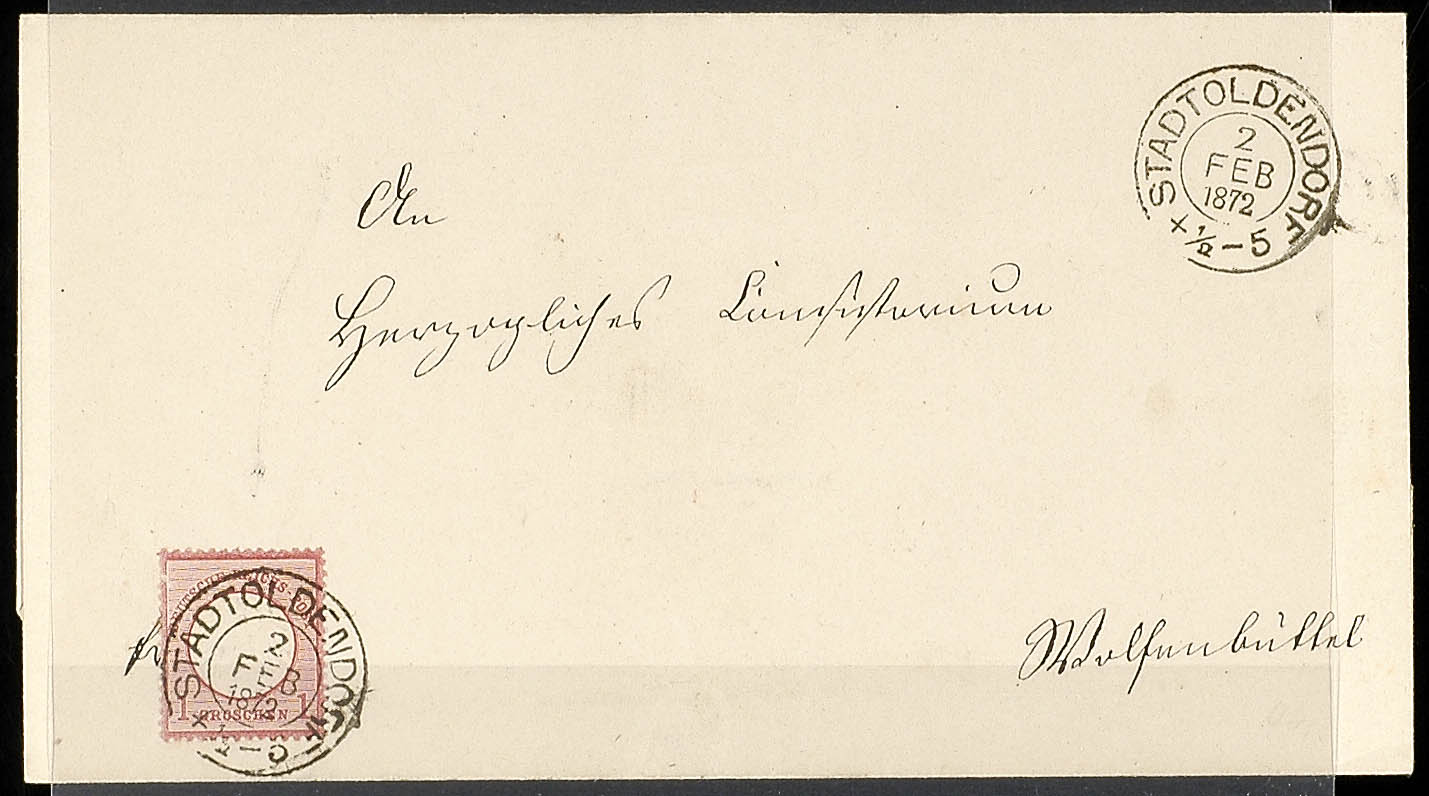 STADTOLDENDORF
2
FEB
1872
× 1/2 - 5
An
Herzogliches Consistorium
Wolfenbüttel
DEUTSCHE REICHS-POST
1 GROSCHEN 1
STADTOLDENDORF
2
FEB
1872
× 1/2 - 5